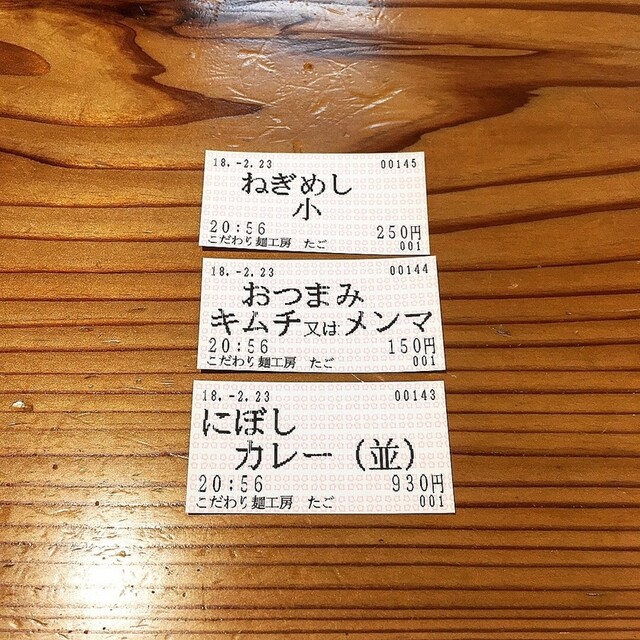 18.-2.23 00145
ねぎめし
小
20:56 250円
こだわり麺工房 たご 001
18.-2.23 00144
おつまみ
キムチ又はメンマ
20:56 150円
こだわり麺工房 たご 001
18.-2.23 00143
にぼし
カレー(並)
20:56 930円
こだわり麺工房 たご 001